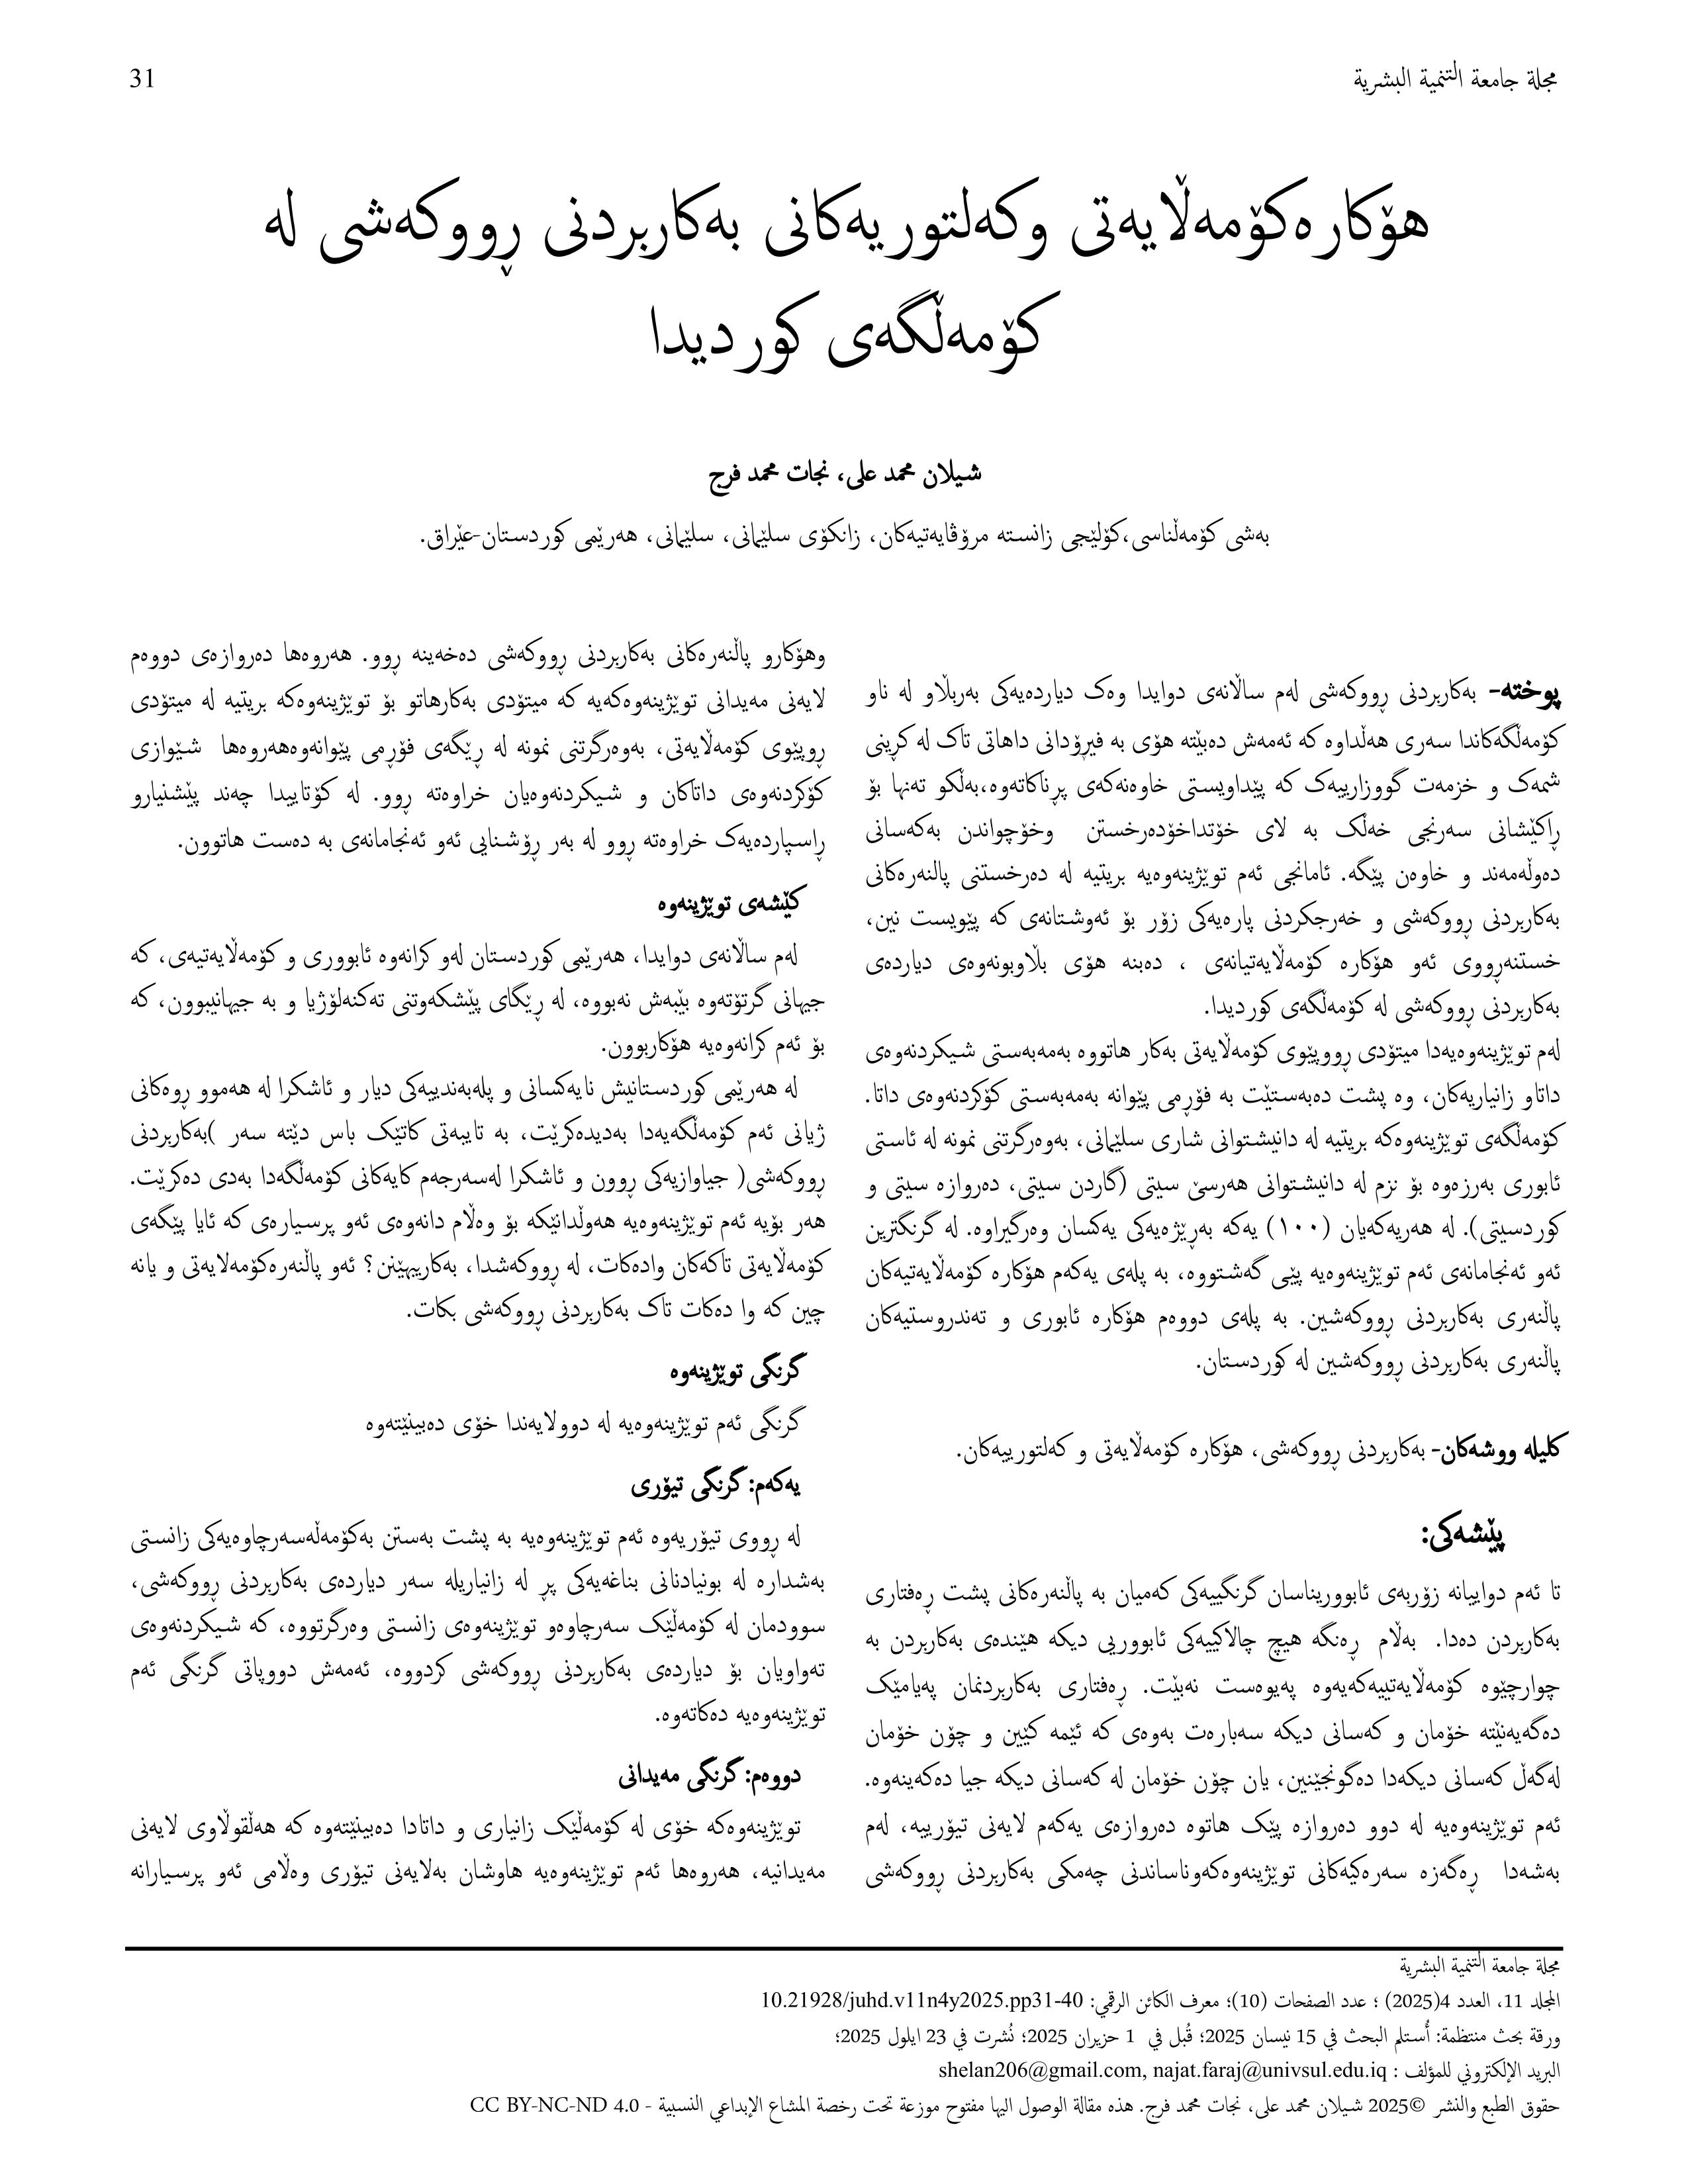 مجلة جامعة التنمية البشرية
31
هۆکارەکۆمەڵایەتی وکەلتوریەکانی بەکاربردنی ڕووکەشی لە
کۆمەڵگەی کوردیدا
شیلان محمد علی، نجات محمد فرج
بەشی کۆمەڵناسی،کۆلێجی زانستە مرۆڤایەتیەکان، زانکۆی سلێمانی، سلێمانی، هەرێمی کوردستان-عێراق.
پوختە- بەکاربردنی ڕووکەشی لەم ساڵانەی دوایدا وەک دیاردەیەکی بەربڵاو لە ناو
کۆمەڵگەکاندا سەری هەڵداوە کە ئەمەش دەبێتە هۆی بە فیڕۆدانی داهاتی تاک لە کڕینی
شمەک و خزمەت گووزارییەک کە پێداویستی خاوەنەکەی پڕناکاتەوە،بەڵکو تەنها بۆ
ڕاکێشانی سەرنجی خەڵک بە لای خۆتداخۆدەرخستن وخۆچواندن بەکەسانی
دەوڵەمەند و خاوەن پێگە. ئامانجی ئەم توێژینەوەیە بریتیە لە دەرخستنی پالنەرەکانی
بەکاربردنی ڕووکەشی و خەرجکردنی پارەیەکی زۆر بۆ ئەوشتانەی کە پێویست نین،
خستنەڕووی ئەو هۆکارە کۆمەڵایەتیانەی ، دەبنە هۆی بڵاوبونەوەی دیاردەی
بەکاربردنی ڕووکەشی لە کۆمەڵگەی کوردیدا.
لەم توێژینەوەیەدا میتۆدی ڕووپێوی کۆمەڵایەتی بەکار هاتووە بەمەبەستی شیکردنەوەی
داتاو زانیاریەکان، وە پشت دەبەستێت بە فۆڕمی پێوانە بەمەبەستی کۆکردنەوەی داتا.
کۆمەڵگەی توێژینەوەکە بریتیە لە دانیشتوانی شاری سلێمانی، بەوەرگرتنی نمونە لە ئاستی
ئابوری بەرزەوە بۆ نزم لە دانیشتوانی هەرسێ سیتی (گاردن سیتی، دەروازە سیتی و
کوردسیتی). لە هەریەکەیان (١٠٠) یەکە بەڕێژەیەکی یەکسان وەرگیراوە. لە گرنگترین
ئەو ئەنجامانەی ئەم توێژینەوەیە پێی گەشتووە، بە پلەی یەکەم هۆکارە کۆمەڵایەتیەکان
پاڵنەری بەکاربردنی ڕووکەشین. بە پلەی دووەم هۆکارە ئابوری و تەندروستیەکان
پاڵنەری بەکاربردنی ڕووکەشین لە کوردستان.
کلیلە ووشەکان- بەکاربردنی ڕووکەشی، هۆکارە کۆمەڵایەتی و کەلتورییەکان.
پێشەکی:
تا ئەم دواییانە زۆربەی ئابووریناسان گرنگییەکی کەمیان بە پاڵنەرەکانی پشت ڕەفتاری
بەکاربردن دەدا. بەڵام ڕەنگە هیچ چالاکییەکی ئابووریی دیکە هێندەی بەکاربردن بە
چوارچێوە کۆمەڵایەتییەکەیەوە پەیوەست نەبێت. ڕەفتاری بەکاربردنمان پەیامێک
دەگەیەنێتە خۆمان و کەسانی دیکە سەبارەت بەوەی کە ئێمە کێین و چۆن خۆمان
لەگەڵ کەسانی دیکەدا دەگونجێنین، یان چۆن خۆمان لە کەسانی دیکە جیا دەکەینەوە.
ئەم توێژینەوەیە لە دوو دەروازە پێک هاتوە دەروازەی یەکەم لایەنی تیۆرییە، لەم
بەشەدا ڕەگەزە سەرەکیەکانی توێژینەوەکەوناساندنی چەمکی بەکاربردنی ڕووکەشی
وهۆکارو پاڵنەرەکانی بەکاربردنی ڕووکەشی دەخەینە ڕوو. هەروەها دەروازەی دووەم
لایەنی مەیدانی توێژینەوەکەیە کە میتۆدی بەکارهاتو بۆ توێژینەوەکە بریتیە لە میتۆدی
ڕوپێوی کۆمەڵایەتی، بەوەرگرتنی نمونە لە ڕێگەی فۆڕمی پێوانەوەهەروەها شێوازی
کۆکردنەوەی داتاکان و شیکردنەوەیان خراوەتە ڕوو. لە کۆتاییدا چەند پێشنیارو
ڕاسپاردەیەک خراوەتە ڕوو لە بەر ڕۆشنایی ئەو ئەنجامانەی بە دەست هاتوون.
کێشەی توێژینەوە
لەم ساڵانەی دوایدا، هەرێمی کوردستان لەو کرانەوە ئابووری و کۆمەڵایەتیەی، کە
جیهانی گرتۆتەوە بێبەش نەبووە، لە ڕێگای پێشکەوتنی تەکنەلۆژیا و بە جیهانیبوون، کە
بۆ ئەم کرانەوەیە هۆکاربوون.
لە هەرێمی کوردستانیش نایەکسانی و پلەبەندییەکی دیار و ئاشکرا لە هەموو ڕوەکانی
ژیانی ئەم کۆمەڵگەیەدا بەدیدەکرێت، بە تایبەتی کاتێک باس دێتە سەر )بەکاربردنی
ڕووکەشی( جیاوازیەکی ڕوون و ئاشکرا لەسەرجەم کایەکانی کۆمەڵگەدا بەدی دەکرێت.
هەر بۆیە ئەم توێژینەوەیە هەوڵدانێکە بۆ وەڵام دانەوەی ئەو پرسیارەی کە ئایا پێگەی
کۆمەڵایەتی تاکەکان وادەکات، لە ڕووکەشدا، بەکاریبهێنن؟ ئەو پاڵنەرەکۆمەلایەتی و یانە
چین کە وا دەکات تاک بەکاربردنی ڕووکەشی بکات.
گرنگی توێژینەوە
گرنگی ئەم توێژینەوەیە لە دوولایەندا خۆی دەبینێتەوە
یەکەم: گرنگی تیۆری
لە ڕووی تیۆریەوە ئەم توێژینەوەیە بە پشت بەستن بەکۆمەڵەسەرچاوەیەکی زانستی
بەشدارە لە بونیادنانی بناغەیەکی پڕ لە زانیاریلە سەر دیاردەی بەکاربردنی ڕووکەشی،
سوودمان لە کۆمەڵێک سەرچاوەو توێژینەوەی زانستی وەرگرتووە، کە شیکردنەوەی
تەواویان بۆ دیاردەی بەکاربردنی ڕووکەشی کردووە، ئەمەش دووپاتی گرنگی ئەم
توێژینەوەیە دەکاتەوە.
دووەم: گرنگی مەیدانی
توێژینەوەکە خۆی لە کۆمەڵێک زانیاری و داتادا دەبینێتەوە کە هەڵقوڵاوی لایەنی
مەیدانیە، هەروەها ئەم توێژینەوەیە هاوشان بەلایەنی تیۆری وەڵامی ئەو پرسیارانە
مجلة جامعة التنمية البشرية
المجلد 11، العدد 4(2025) ؛ عدد الصفحات (10)؛ معرف الكائن الرقمي: 10.21928/juhd.v11n4y2025.pp31-40
ورقة بحث منتظمة: أُستلم البحث في 15 نيسان 2025؛ قُبل في 1 حزيران 2025؛ نُشرت في 23 ايلول 2025؛
البريد الإلكتروني للمؤلف : shelan206@gmail.com, najat.faraj@univsul.edu.iq
حقوق الطبع والنشر ©2025 شیلان محمد علی، نجات محمد فرج. هذه مقالة الوصول اليها مفتوح موزعة تحت رخصة المشاع الإبداعي النسبية - CC BY-NC-ND 4.0